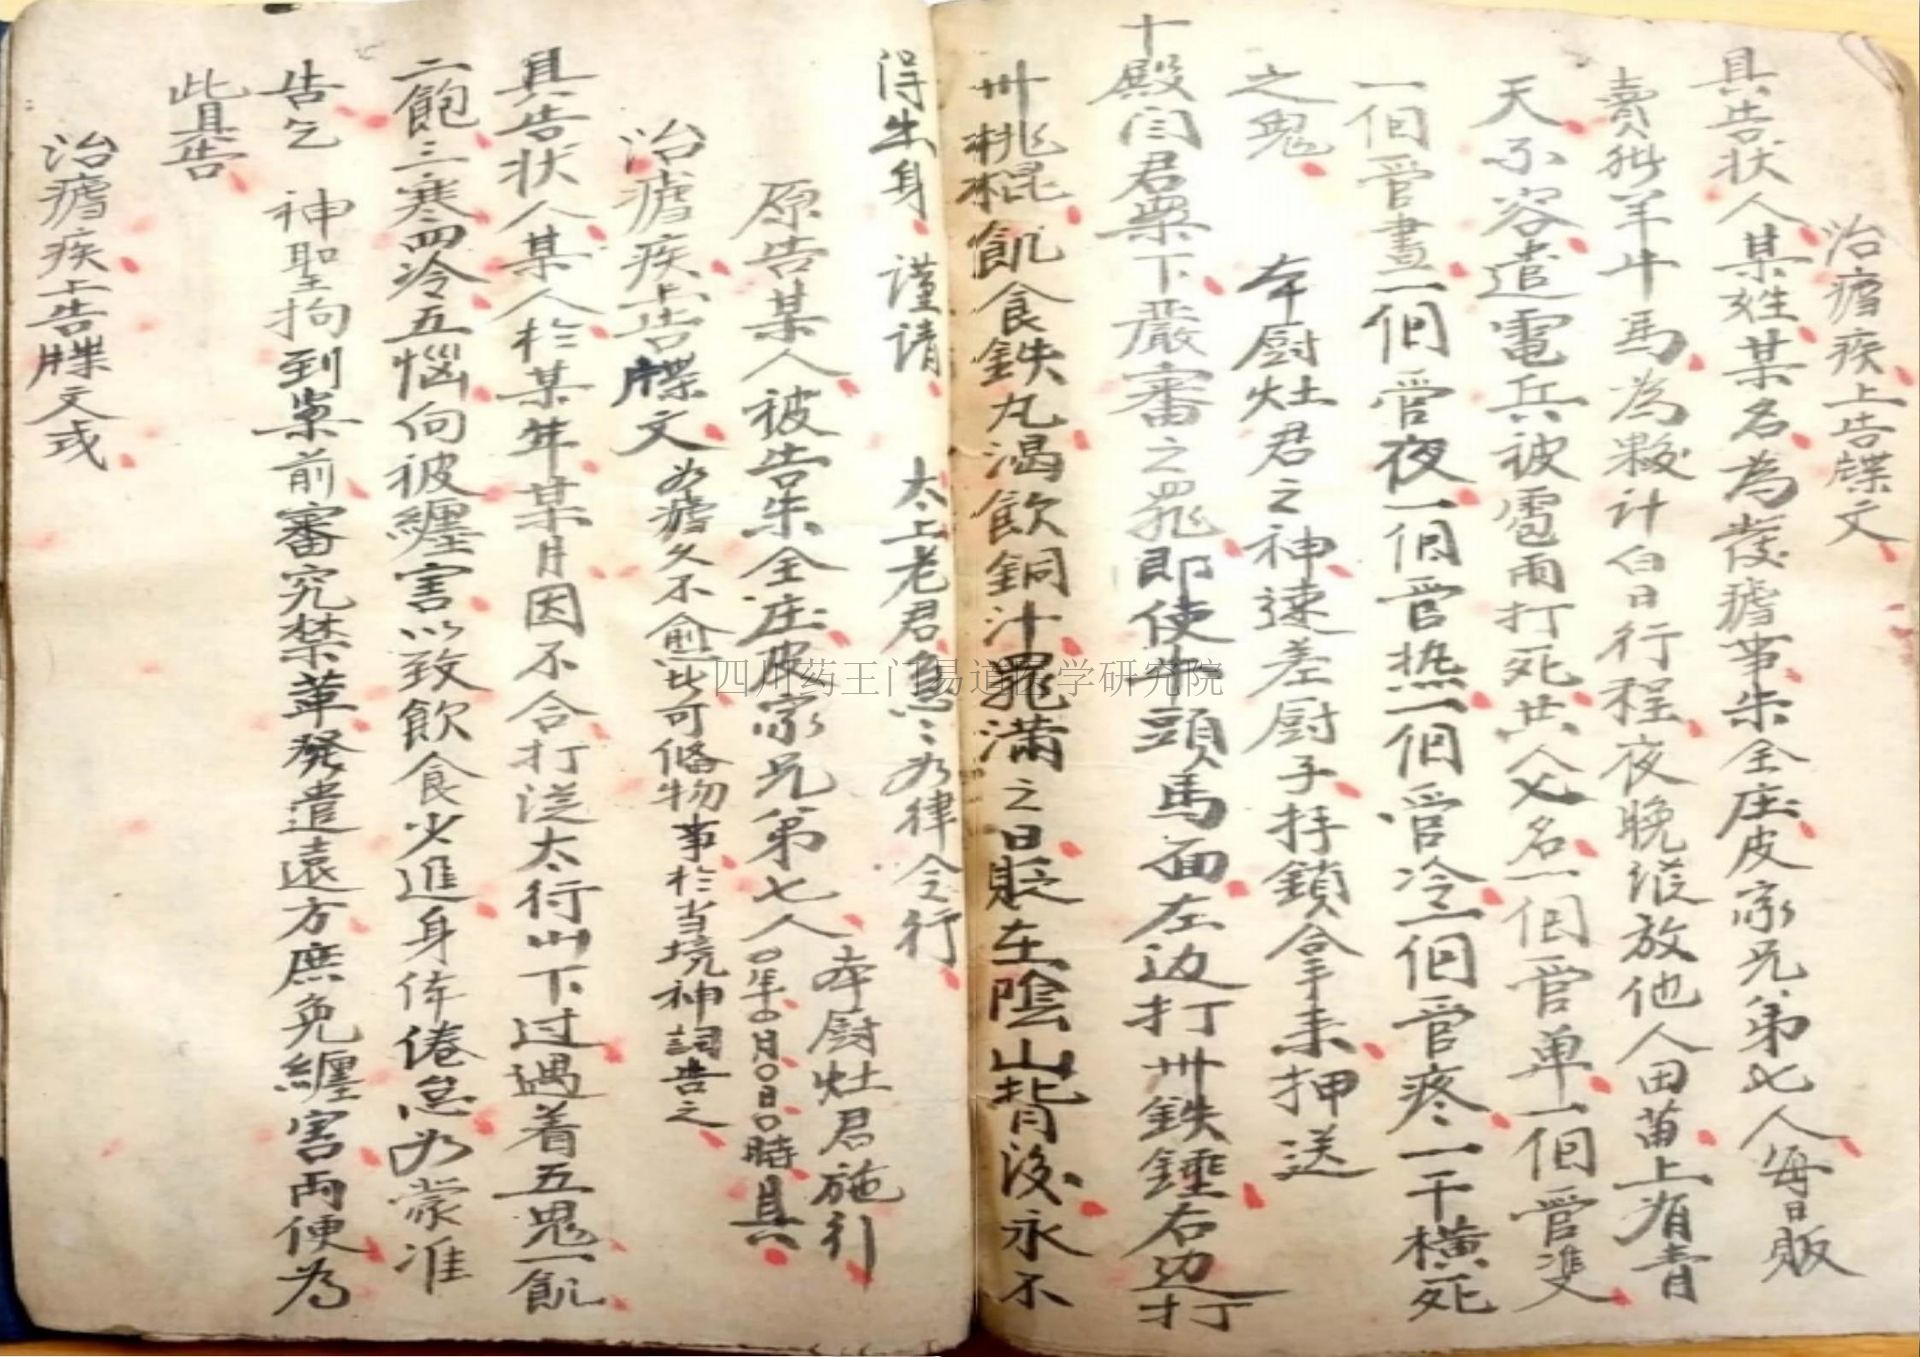 治瘧疾上告牒文
具告状人某姓某名為發瘧事朱全庄皮家兄弟七人每日販
賣猪羊牛馬為夥計白日行程夜晚縱放他人田苗上有青
天不容遣電兵被雹雨打死共人七名一個管单一個管雙
一個管晝一個管夜一個管热一個管冷一個管疼一干橫死
之鬼 本厨灶君之神速差厨子持鎖合拿来押送
十殿闫君案下嚴審之罪即使牛頭馬面左边打卅鉄錘右边打
卅桃棍飢食鉄丸渴飲銅汁罪满之日貶在陰山背後永不
得生身 謹請 太上老君急々如律令行
本厨灶君施行
原告某人被告朱全庄皮家兄弟七人 〇年〇月〇日〇時具
治瘧疾上告牒文 如瘧久不愈此可俻物事於当境神詞告之
具告状人某人於某年某月因不合打従太行山下过遇着五鬼一飢
二飽三寒四冷五惱向被纏害以致飲食少進身体倦怠如蒙准
告乞 神聖拘到案前審究禁革發遣遠方庶免纏害两便為
此具告
治瘧疾上告牒文式
四川药王门易道医学研究院